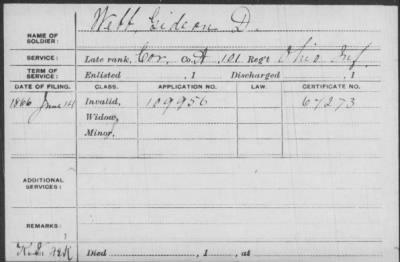 Webb, Gideon D.
NAME OF SOLDIER:
SERVICE: Late rank, Cor, Co. A 101 Reg't Ohio Inf.
TERM OF SERVICE: Enlisted , 1 Discharged , 1
DATE OF FILING. CLASS. APPLICATION NO. LAW. CERTIFICATE NO.
1866 June 14 Invalid, 109956 67273
Widow,
Minor,
ADDITIONAL SERVICES:
REMARKS:
Died , 1 , at